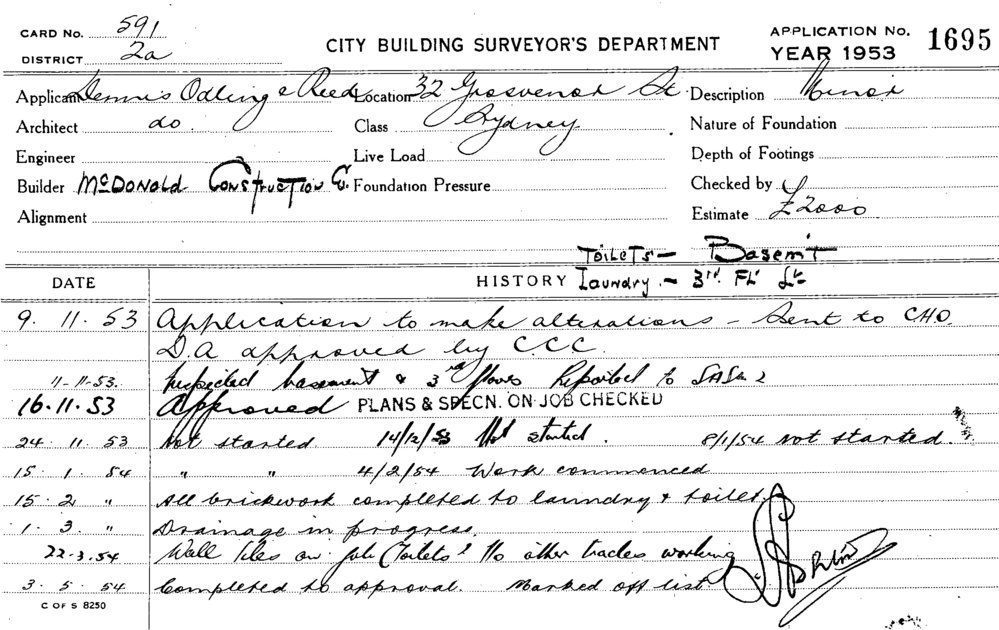 CARD No. 591
DISTRICT 2a
CITY BUILDING SURVEYOR'S DEPARTMENT
APPLICATION No. 1695
YEAR 1953
Applicant Dennis Odling & Reed Location 32 Grosvenor St Description Minor
Architect do. Class Sydney Nature of Foundation
Engineer Live Load Depth of Footings
Builder McDonald Construction Co. Foundation Pressure Checked by
Alignment Estimate £2000
Toilets - Basem't
DATE HISTORY Laundry - 3rd. FL
9. 11. 53 Application to make alterations - Sent to C.H.O.
D.A approved by C.C.C.
11-11-53. Inspected basement & 3rd floors Reported to
16.11.53 Approved PLANS & SPECN. ON JOB CHECKED
24. 11. 53 Not started 14/12/53 Not started. 8/1/54 Not started.
15. 1. 54 " " 4/2/54 Work commenced
15. 2 " All brickwork completed to laundry & toilet.
1. 3. " Drainage in progress.
22.3.54 Wall tiles on job (Toilets) No other trades working
3. 5. 54 Completed to approval. Marked off list
C OF S 8250